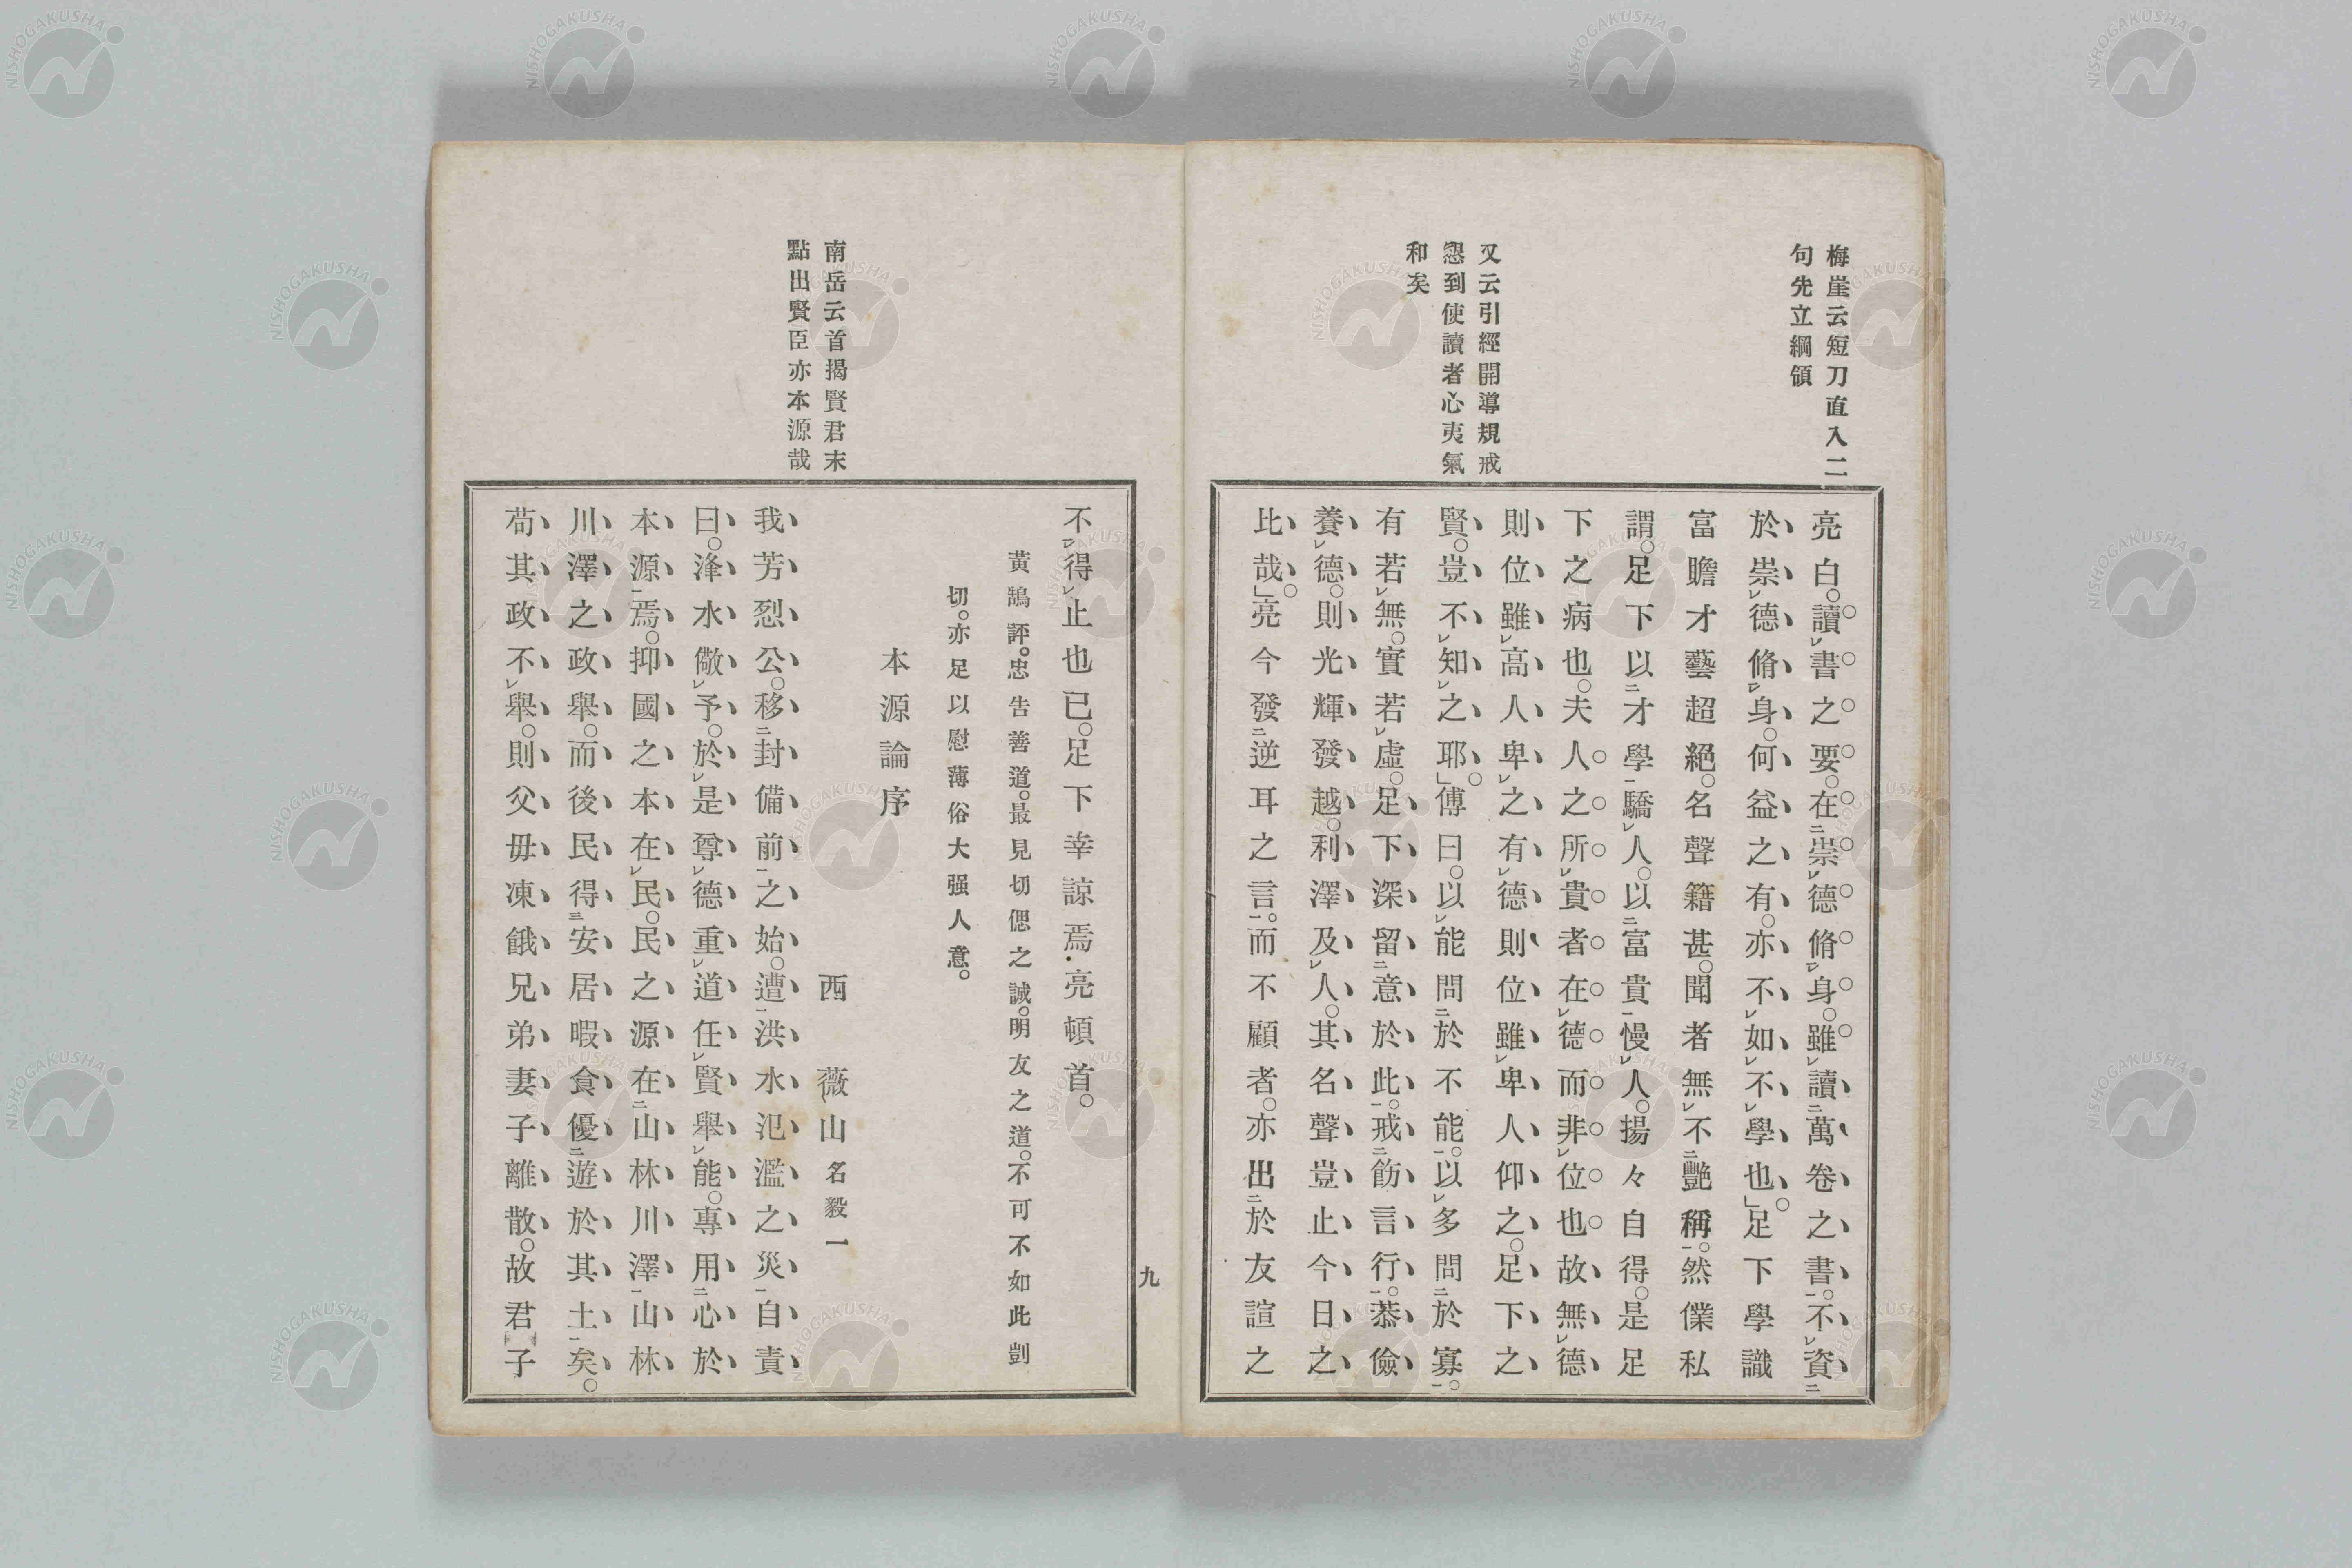 梅崖云短刀直入二
句先立綱領
又云引經開導規戒
懇到使讀者心夷氣
和矣
亮白。讀㆑書之要。在㆓崇㆑德脩㆑身。雖㆑讀㆓萬卷之書㆒。不㆑資㆓
於崇㆑德脩㆑身。何益之有。亦不㆑如㆑不㆑學也」。足下學識
富贍才藝超絕。名聲籍甚。聞者無㆑不㆓艷稱㆒。然僕私
謂。足下以㆓才學㆒驕㆑人。以㆓富貴㆒慢㆑人。揚々自得。是足
下之病也。夫人之所㆑貴者在㆑德而非㆑位也。故無㆑德
則位雖㆑高人卑㆑之。有㆑德則位雖㆑卑人仰㆑之。足下之
賢。豈不㆑知㆑之耶」。傅曰。以㆑能問㆓於不能㆒。以㆑多問㆓於寡㆒。
有若㆑無。實若㆑虛。足下深留㆓意於此㆒。戒㆓飭言行㆒。恭儉
養㆑德。則光輝發越。利澤及㆑人。其名聲豈止今日之
比哉。」亮今發㆓逆耳之言㆒。而不顧者。亦出㆓於友誼之
南岳云首揭賢君末
點出賢臣亦本源哉
九
不㆑得㆑止也已。足下幸諒焉.亮頓首。
黃鵠評。忠告善道。最見切偲之誠。明友之道。不可不如此剴
切。亦足以慰薄俗大强人意。
本源論序
西薇山名毅一
我芳烈公。移㆓封備前㆒之始。遭㆓洪水氾濫之災㆒自責
曰。洚水儆㆑予。於㆑是尊㆑德重㆑道任㆑賢舉㆑能。專用㆓心於
本源㆒焉。抑國之本在㆑民。民之源在㆓山林川澤㆒山林
川澤之政舉。而後民得㆘安居暇食優㆓遊於其土㆒矣。
苟其政不㆑舉。則父毋凍餓兄弟妻子離散。故君子